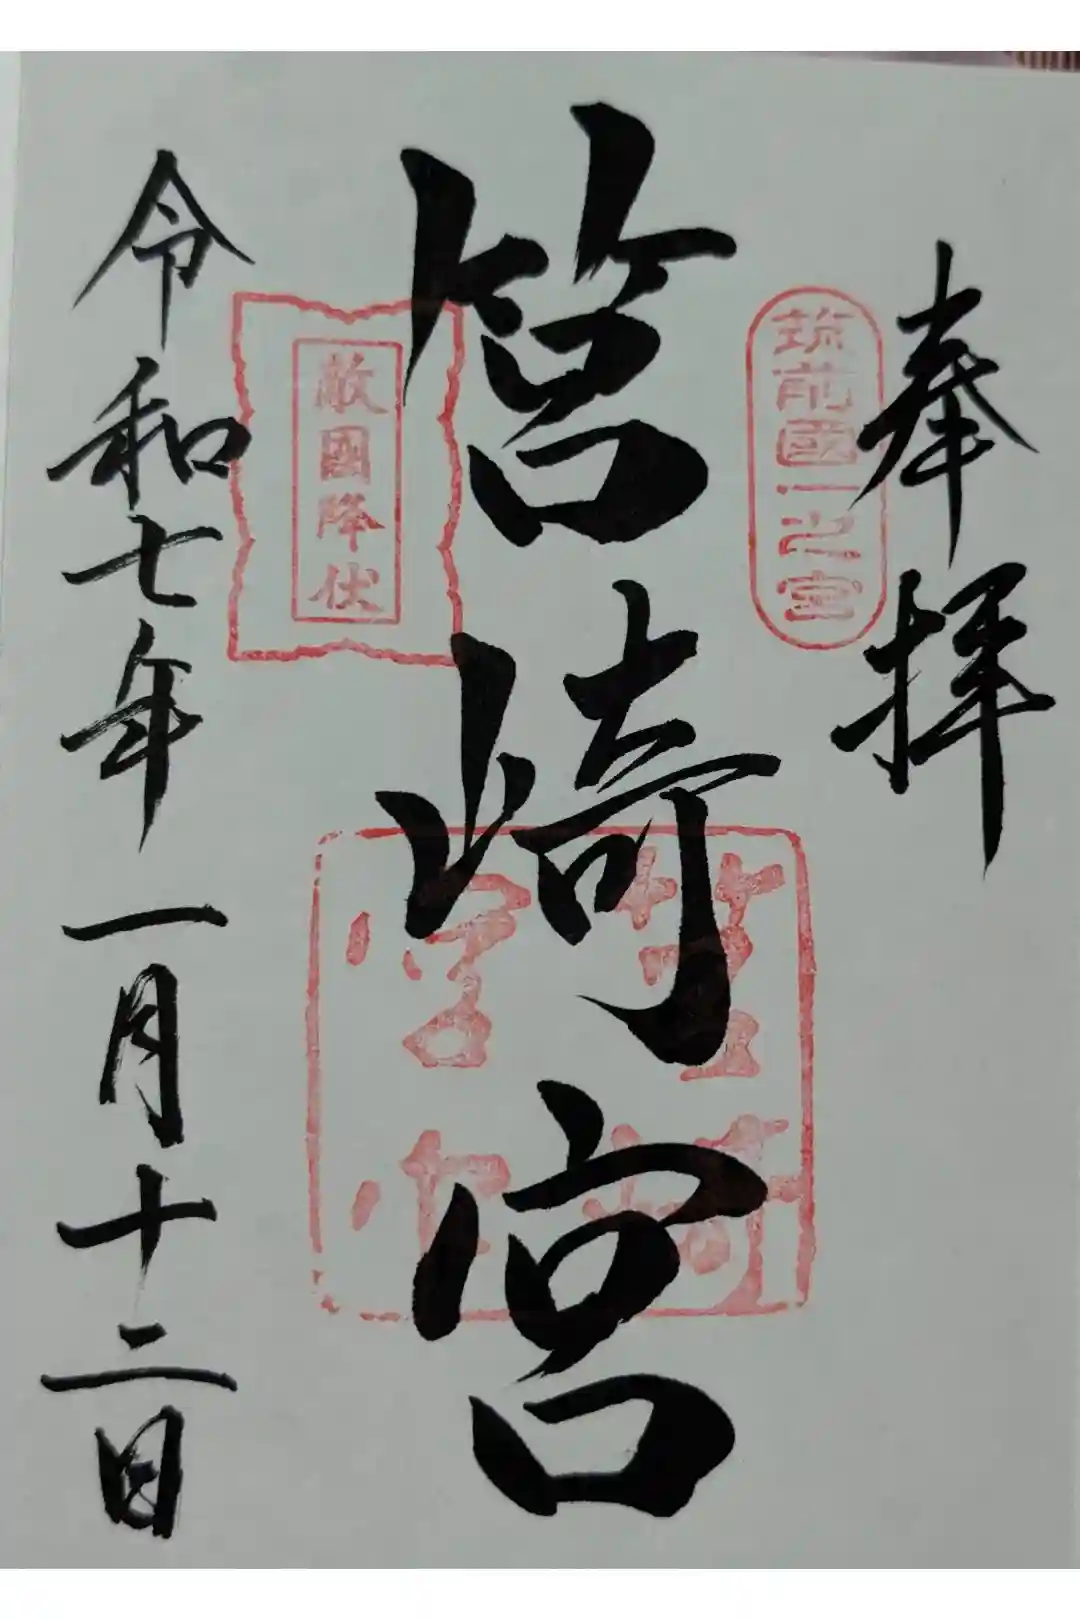 奉拝
筑前國一之宮
筥崎宮
敵國降伏
令和七年一月十二日